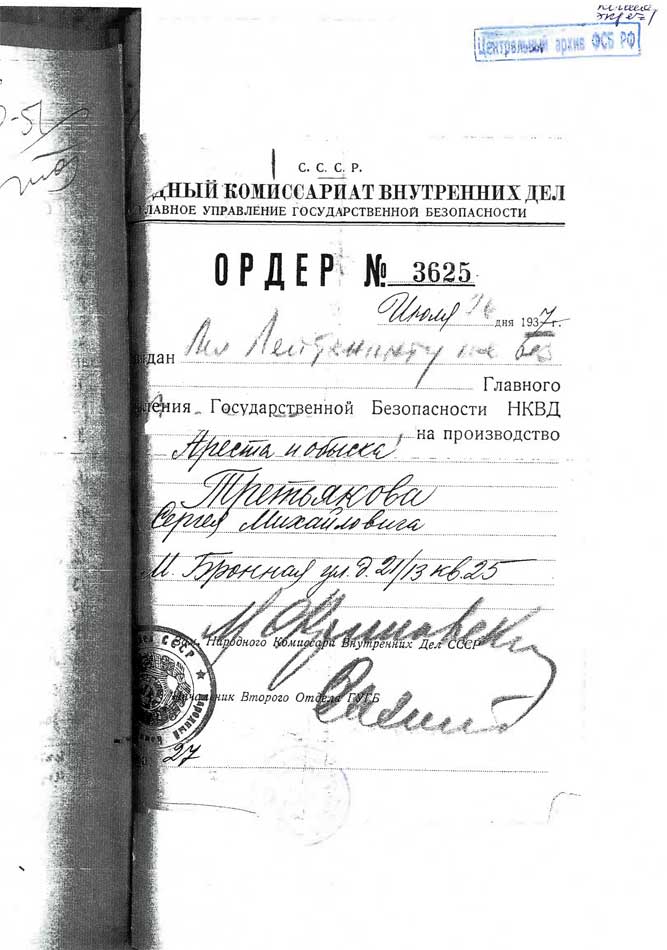 Центральный архив ФСБ РФ
С. С. С. Р.
ДНЫЙ КОМИССАРИАТ ВНУТРЕННИХ ДЕЛ
ГЛАВНОЕ УПРАВЛЕНИЕ ГОСУДАРСТВЕННОЙ БЕЗОПАСНОСТИ
ОРДЕР № 3625
Июля дня 1937 г.
дан Мл Лейтенанту
Главного
ления Государственной Безопасности НКВД
на производство
Ареста и обыска
Третьякова
Сергея Михайловича
М. Бронная ул. д. 21/13 кв. 25
Зам. Народного Комиссара Внутренних Дел СССР
Начальник Второго Отдела ГУГБ
27